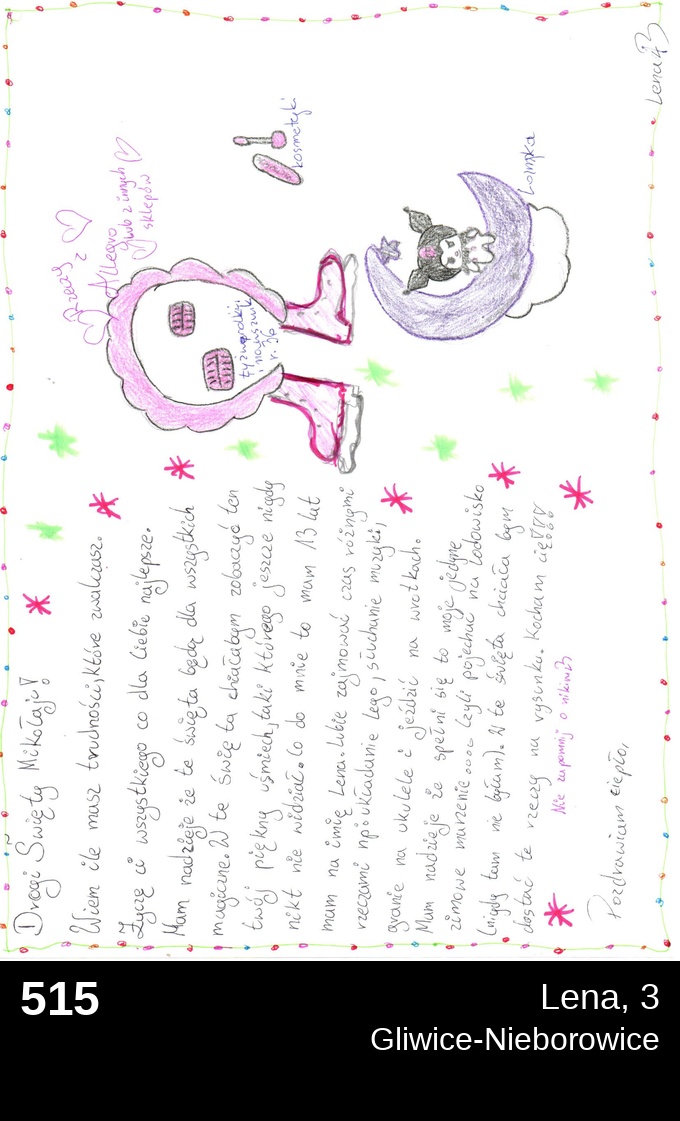 Drogi Święty Mikołaju!
Wiem ile masz trudności, które zwalczasz.
Życzę ci wszystkiego co dla Ciebie najlepsze.
Mam nadzieje że te święta będą dla wszystkich
magiczne. W te Święta chciałabym zobaczyć ten
twój piękny uśmiech, taki którego jeszcze nigdy
nikt nie widział. Co do mnie to mam 13 lat
mam na imię Lena. Lubie zajmować czas różnymi
rzeczami np. układanie lego, słuchanie muzyki,
granie na ukulele i jeździć na wrotkach.
Mam nadzieje że spełni się to moje jedyne
zimowe marzenie.... czyli pojechać na lodowisko
(nigdy tam nie byłam). W te święta chciała bym
dostać te rzeczy na rysunku. Kocham cię
Nie zapomnij o nikim
Pozdrawiam ciepło,
Rzeczy z
Allegro
lub z innych
sklepów
łyżworolki
r. 36
kosmetyki
Lampka
Lena
515
Lena, 3
Gliwice-Nieborowice